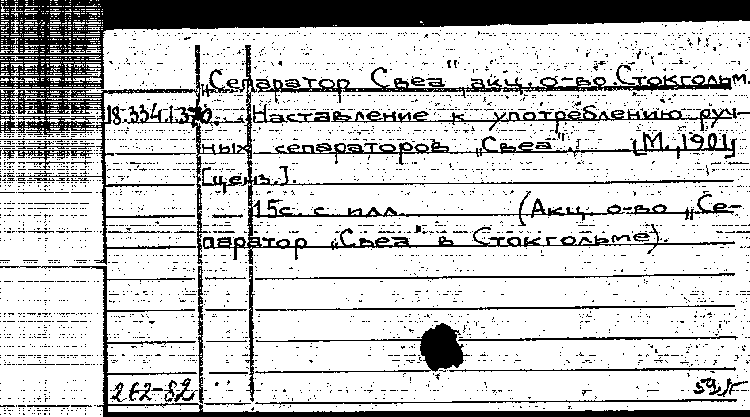 „Сепаратор Свеа" акц. о-во. Стокгольм.
18.334.1.370. Наставление к употреблению руч-
ных сепараторов „Свеа". [М., 1901]
[ценз.].
15с. с илл. (Акц. о-во „Се-
паратор „Свеа" в Стокгольме).
262-82